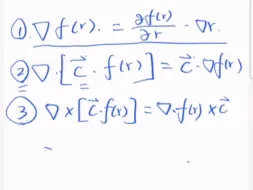 ① ∇f(r). = ∂f(r)/∂r · ∇r.
② ∇·[c⃗·f(r)] = c⃗·∇f(r)
③ ∇×[c⃗·f(r)] = ∇·f(r)×c⃗